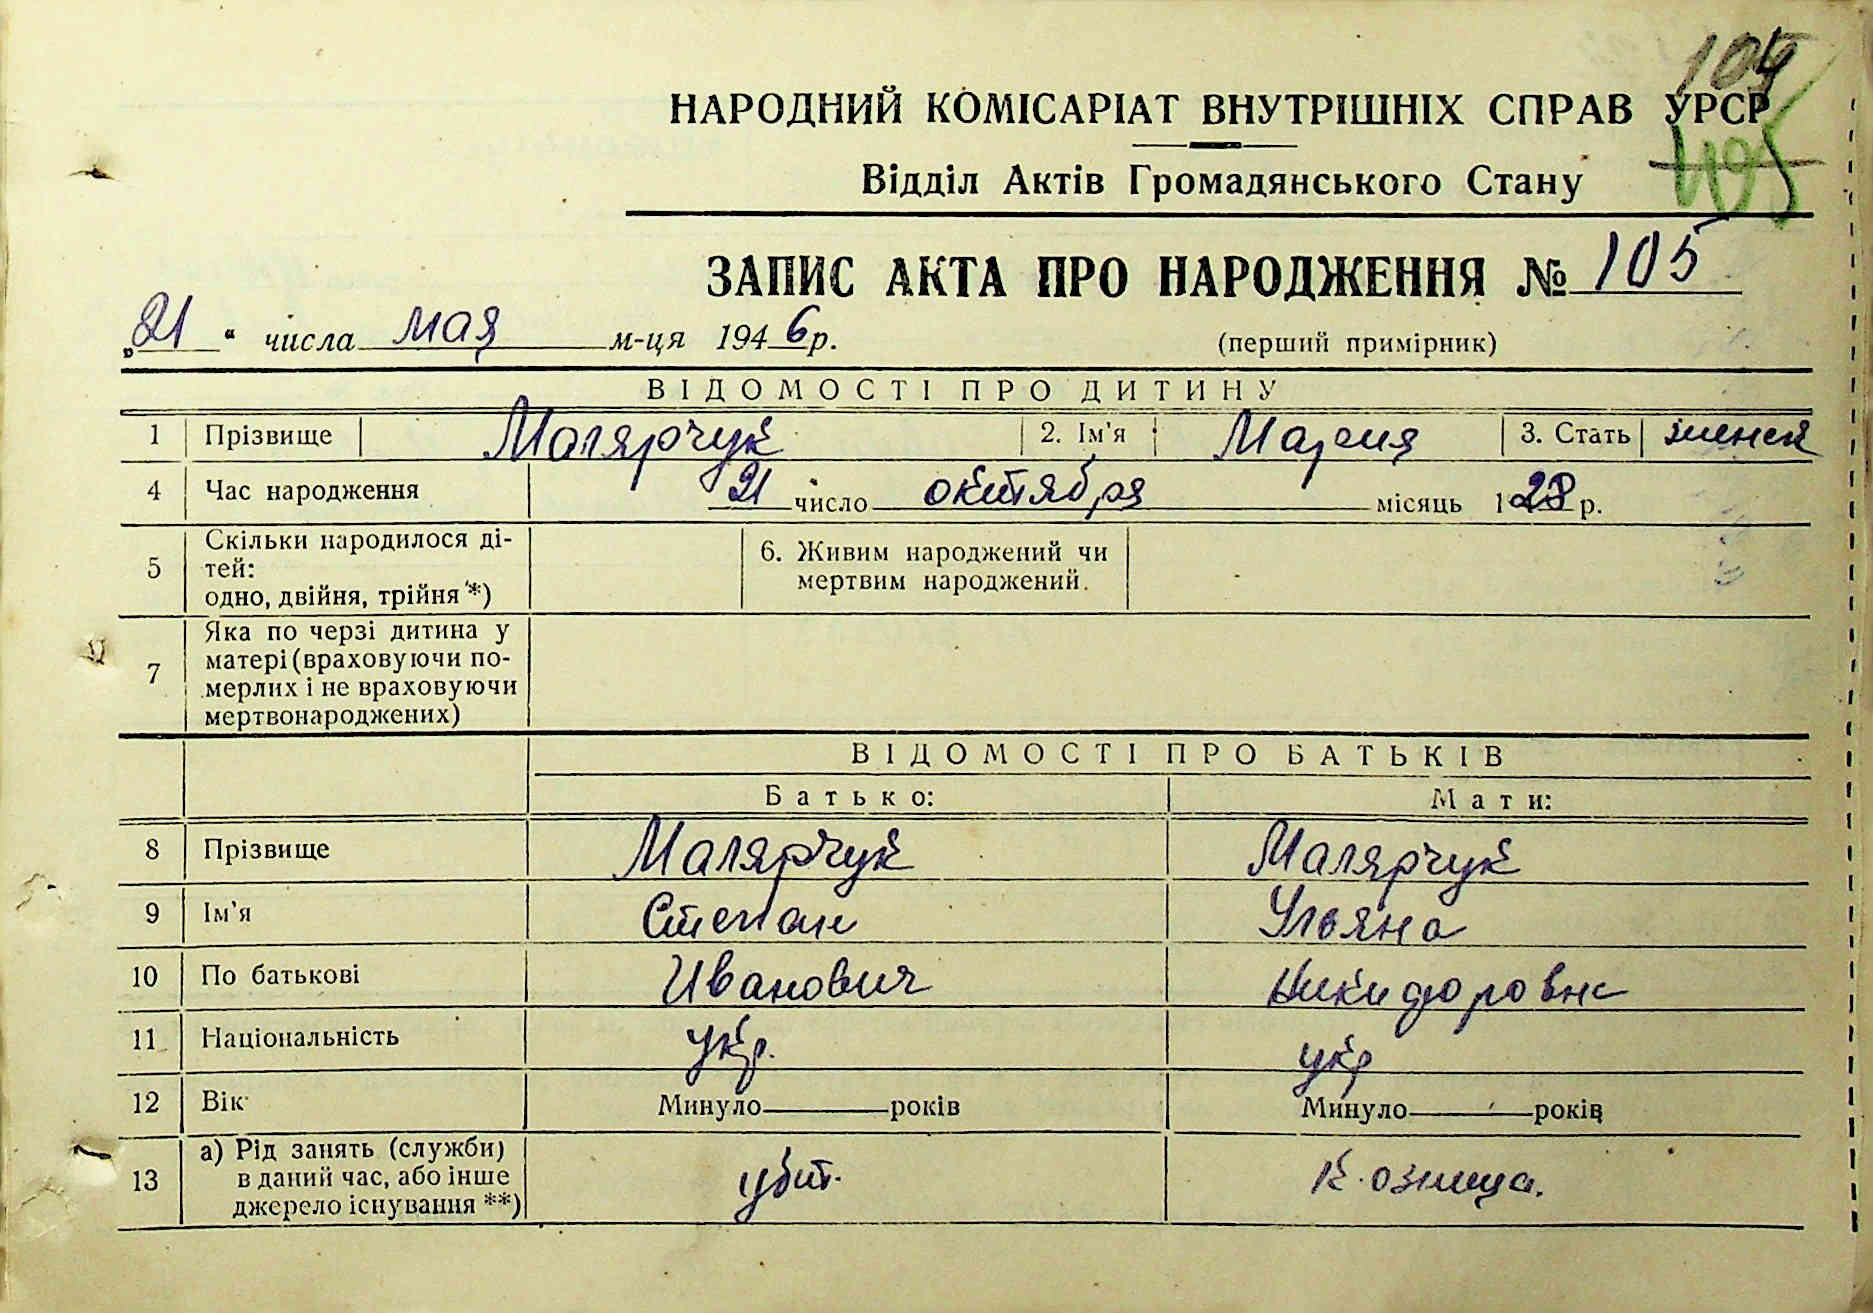 104
НАРОДНИЙ КОМІСАРІАТ ВНУТРІШНІХ СПРАВ УРСР
105
Відділ Актів Громадянського Стану
ЗАПИС АКТА ПРО НАРОДЖЕННЯ № 105
„21“ числа мая м-ця 1946 р.
(перший примірник)
ВІДОМОСТІ ПРО ДИТИНУ
1 Прізвище Малярчук 2. Ім'я Мария 3. Стать женск
4 Час народження 21 число октября місяць 1928 р.
5 Скільки народилося ді-
тей:
одно, двійня, трійня *)
6. Живим народжений чи
мертвим народжений.
7 Яка по черзі дитина у
матері (враховуючи по-
мерлих і не враховуючи
мертвонароджених)
ВІДОМОСТІ ПРО БАТЬКІВ
Батько: Мати:
8 Прізвище Малярчук Малярчук
9 Ім'я Степан Ульяна
10 По батькові Иванович Никифоровна
11 Національність укр. укр
12 Вік Минуло років Минуло років
13 а) Рід занять (служби)
в даний час, або інше
джерело існування **)
убит. к-озница.